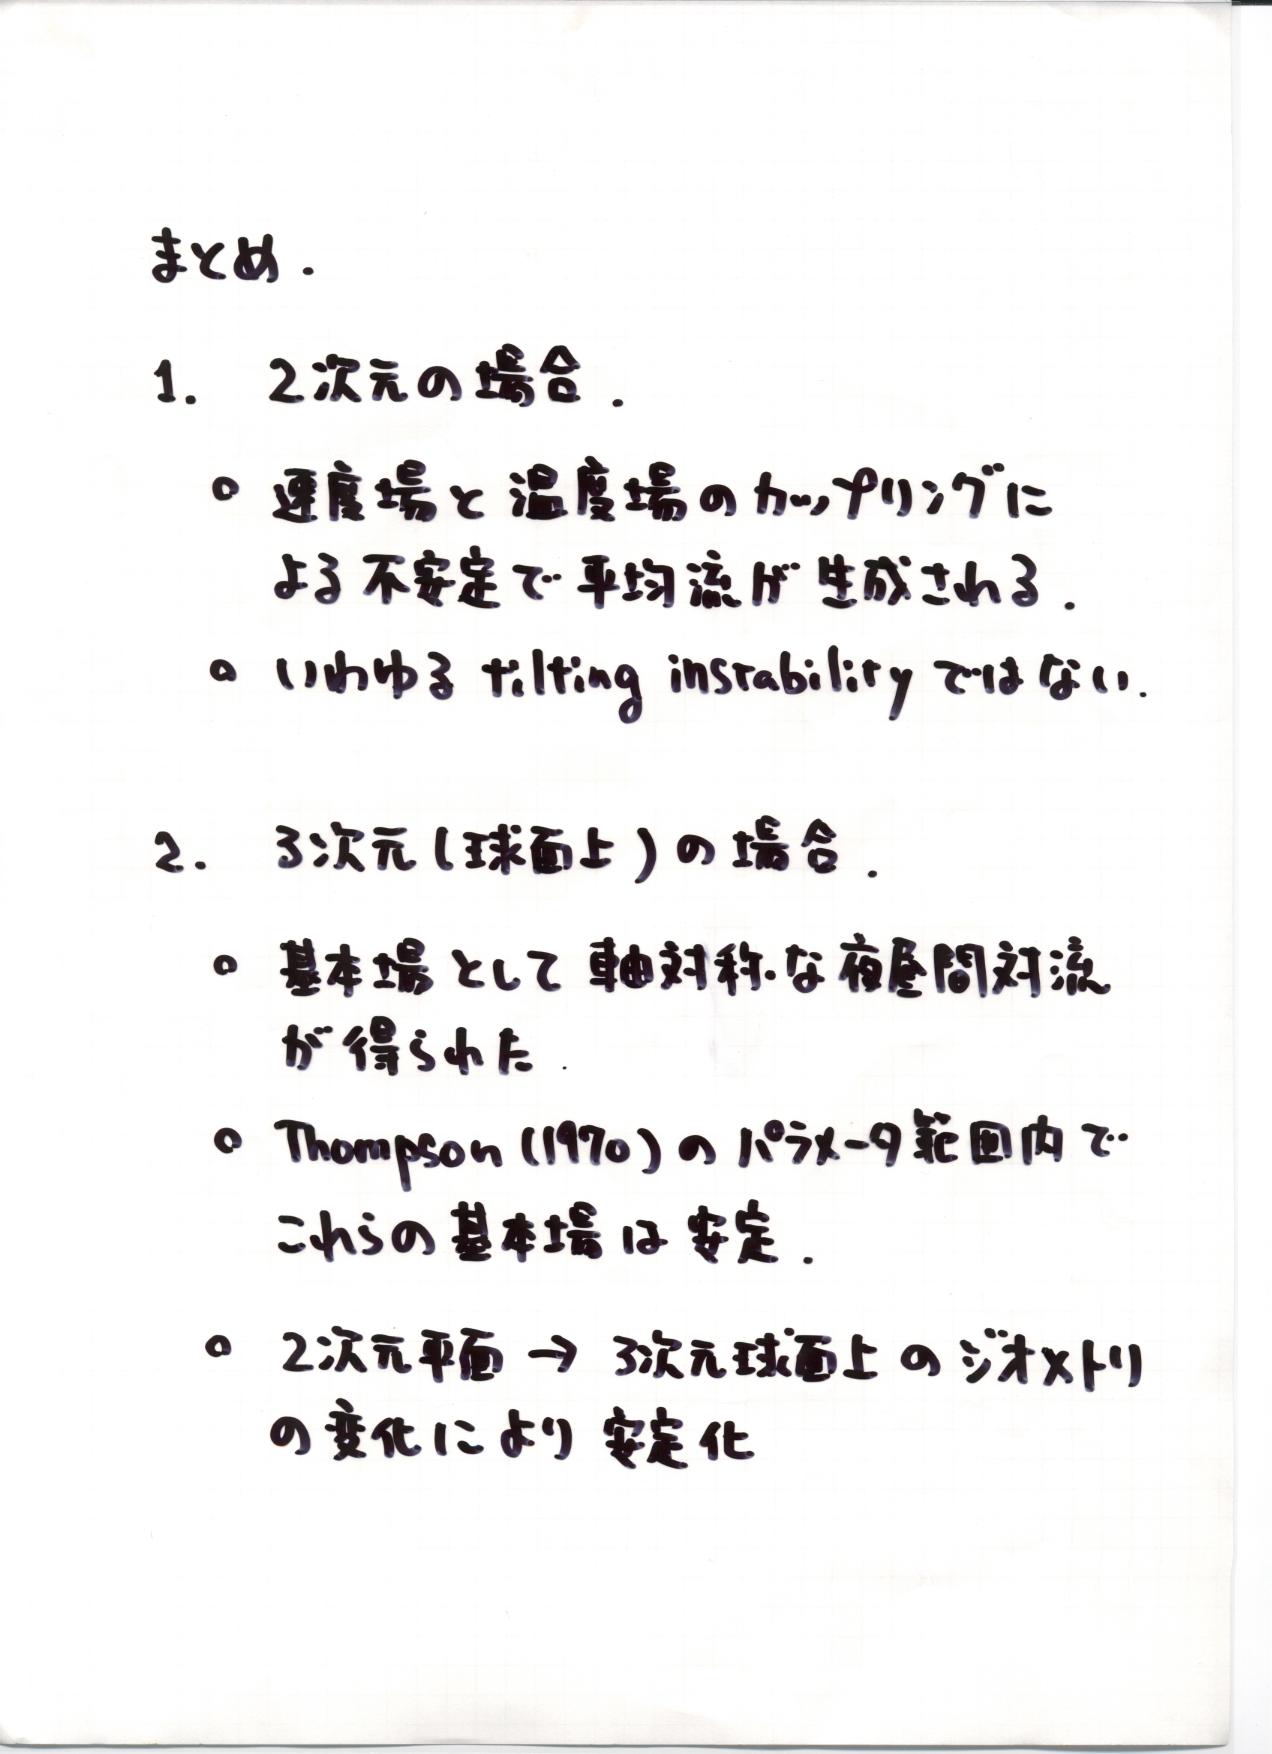 まとめ.
1. 2次元の場合.
o 速度場と温度場のカップリングに
よる不安定で平均流が生成される.
o いわゆる tilting instability ではない.
2. 3次元(球面上)の場合.
o 基本場として軸対称な夜昼間対流
が得られた.
o Thompson (1970)のパラメータ範囲内で
これらの基本場は安定.
o 2次元平面→3次元球面上のジオメトリ
の変化により安定化